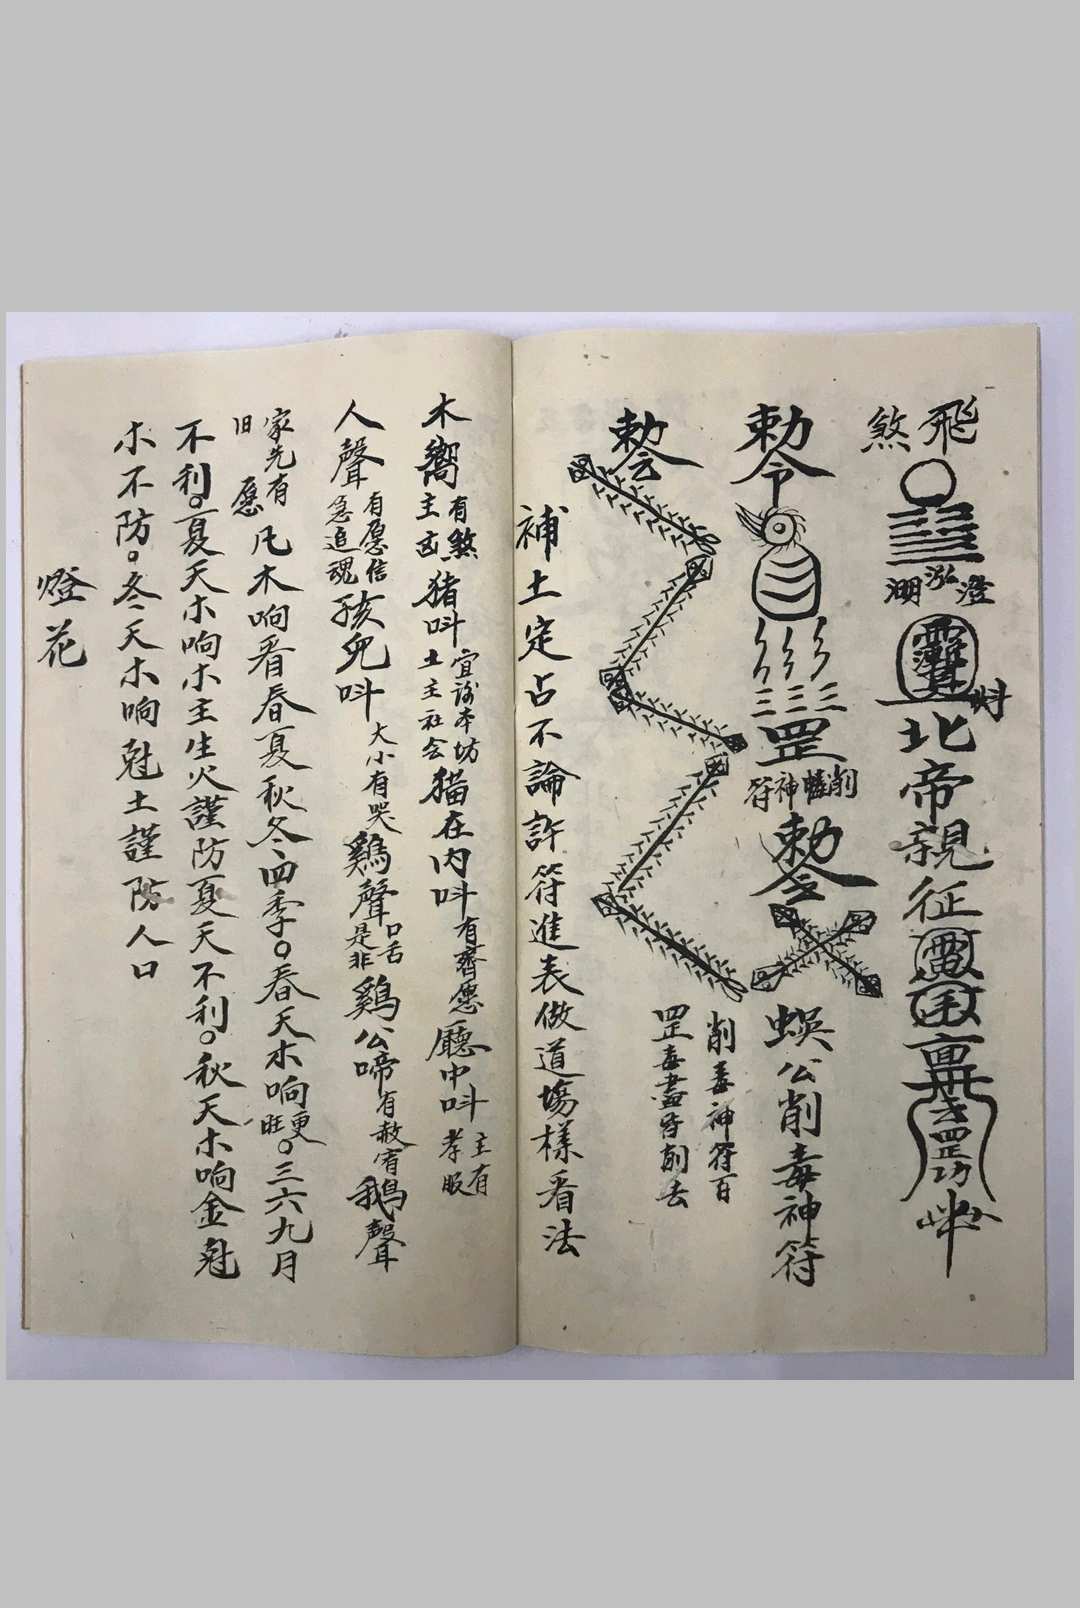 飛
煞
澄泓溯
北帝親征
罡功
勅令
罡
削
神符
勅令
蜈公削毒神符
勅令
削毒神符百
罡毒盡皆削去
補土定占不論許符進表做道場樣看法
木嚮有煞主凶猪呌宜謝本坊土主社会猫在内呌有齊愿廳中呌主有孝服
人聲有愿信急追魂孩兒呌大小有哭鷄聲口舌是非鷄公啼有赦宥鵝聲
家先有旧愿凡木响看春夏秋冬四季。春天木响更旺。三六九月
不利。夏天木响木主生火謹防夏天不利。秋天木响金尅
木不防。冬天木响尅土謹防人口
燈花